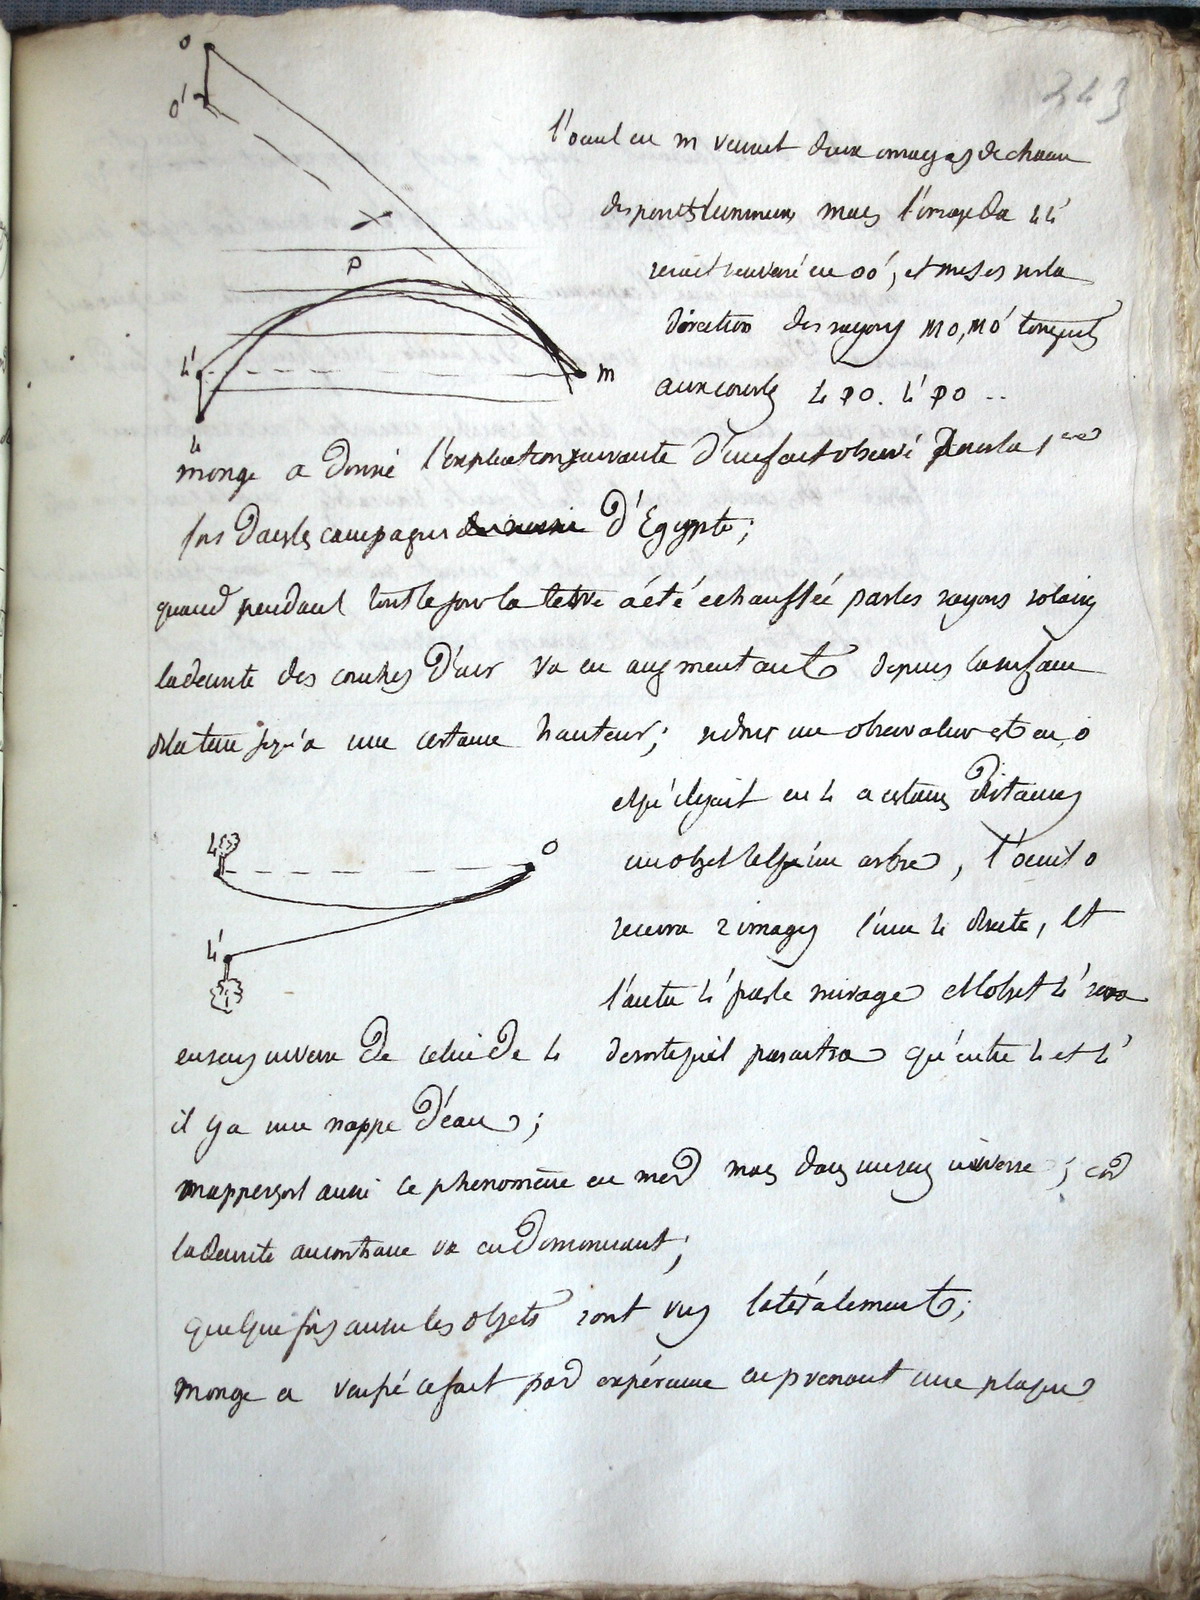 343
O
O'
P
L'
m
L
l'oeuil en m verrait deux images de chacun
des points lumineux mais l'image da LL'
serait renversé en OO', et mises sur la
direction des rayons MO, MO' tangents
aux courbes L PO. L' PO ..
monge a donné l'explication suivante d'un fait observé pour la 1ere
fois dans les campagnes d'Egypte;
quand pendant tout le jour la terre a été echauffée par les rayons solaires
la densite des couches d'air va en augmentant depuis la surface
de la terre jusqu'a une certaine hauteur; si donc un observateur est en o
et qu'il y ait en L a certaines distances
un objet tel qu'un arbre, l'oeuil o
L
O
recevra 2 images l'une L directe, et
L'
l'autre L' par le mirage et l'objet L' sera
en sens inverse de celui de L de sorte qu'il paraitra qu'entre L et L'
il y a une nappe d'eau;
on appercoit aussi ce phenomène en mer mais dans un sens inverse; car
la densite au contraire va en diminuant;
quelque fois aussi les objets sont vus latéralement;
monge a verifié ce fait par expérience en prenant une plaque